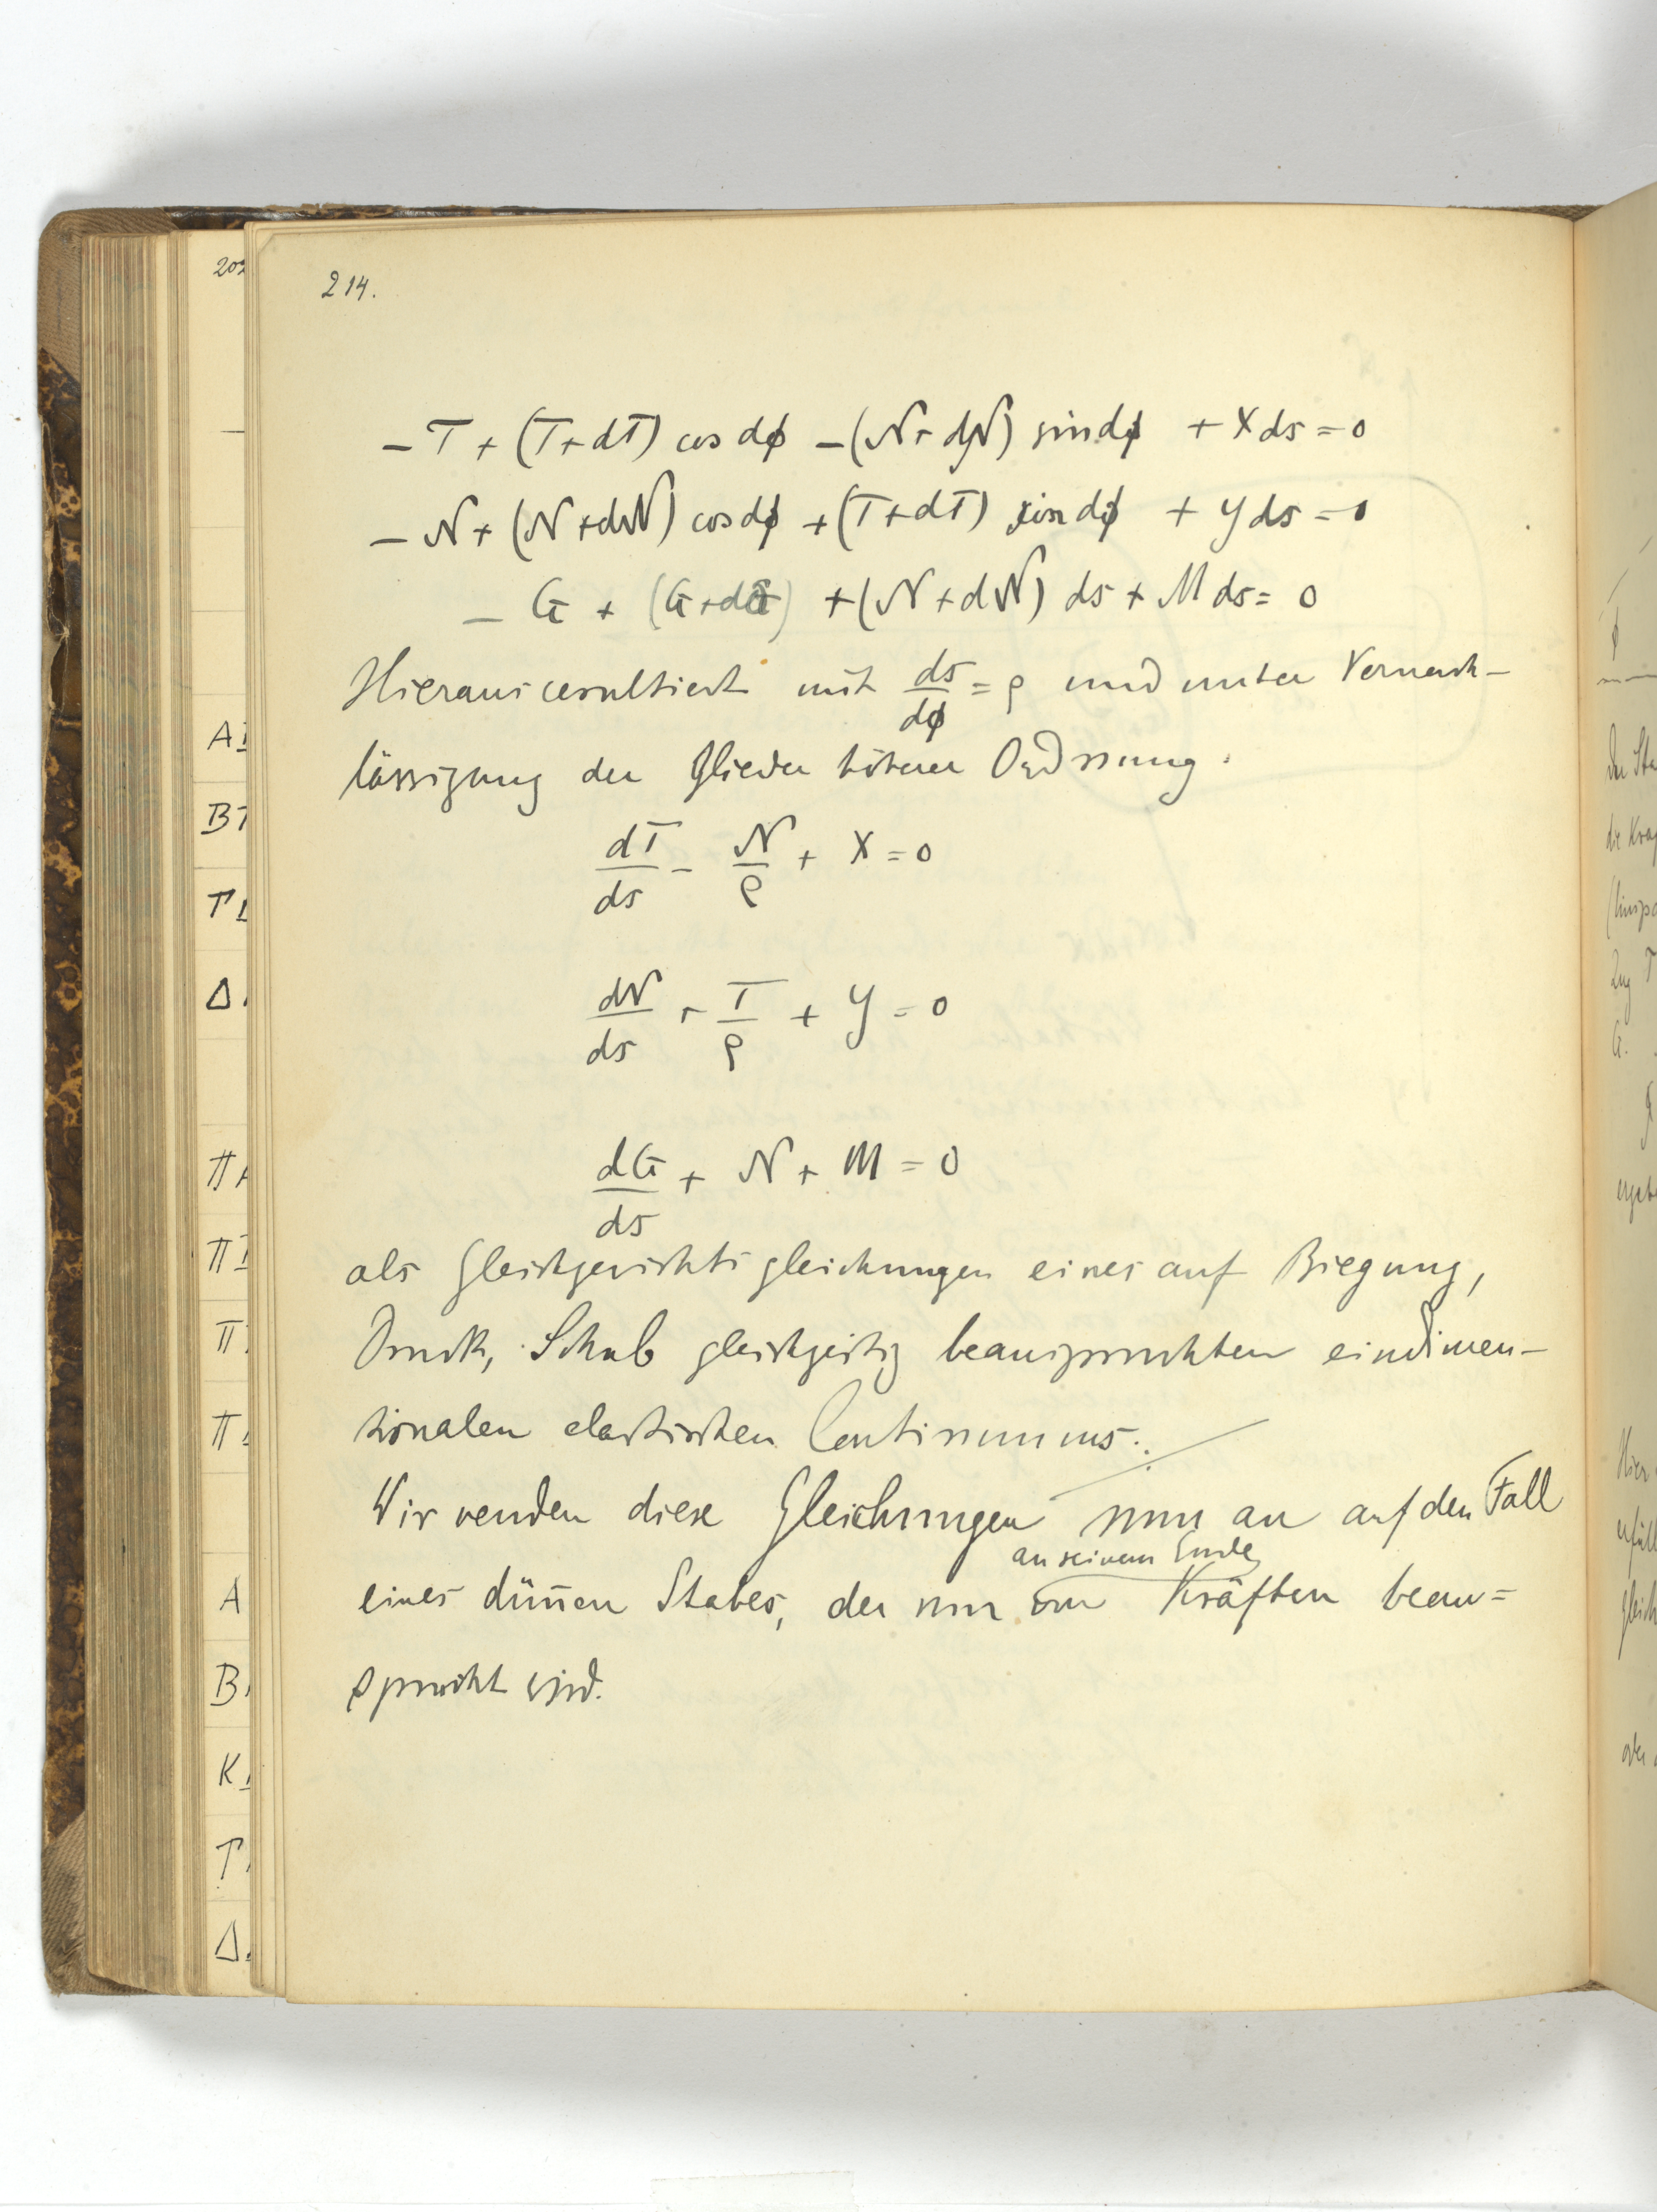 214.
− T + (T + dT) cos dϕ − (N + dN) sin dϕ + X ds = 0
− N + (N + dN) cos dϕ + (T + dT) sin dϕ + Y ds = 0
− G + (G + dG) + (N + dN) ds + M ds = 0
Hieraus resultiert mit ds/dϕ = ρ und unter Vernach-
lässigung der Glieder höherer Ordnung.
dT/ds − N/ρ + X = 0
dN/ds + T/ρ + Y = 0
dG/ds + N + M = 0
als Gleichgewichtsgleichungen eines auf Biegung,
Druck, Schub gleichzeitig beanspruchten eindimen-
sionalen elastischen Continuums.
Wir wenden diese Gleichungen nun an auf den Fall
an seinem Ende
eines dün̄en Stabes, der nur von Kräften bean=
sprucht wird.
203
A
B
Γ
Δ
Π
Π
Π
Π
A
B
K
Γ
Δ